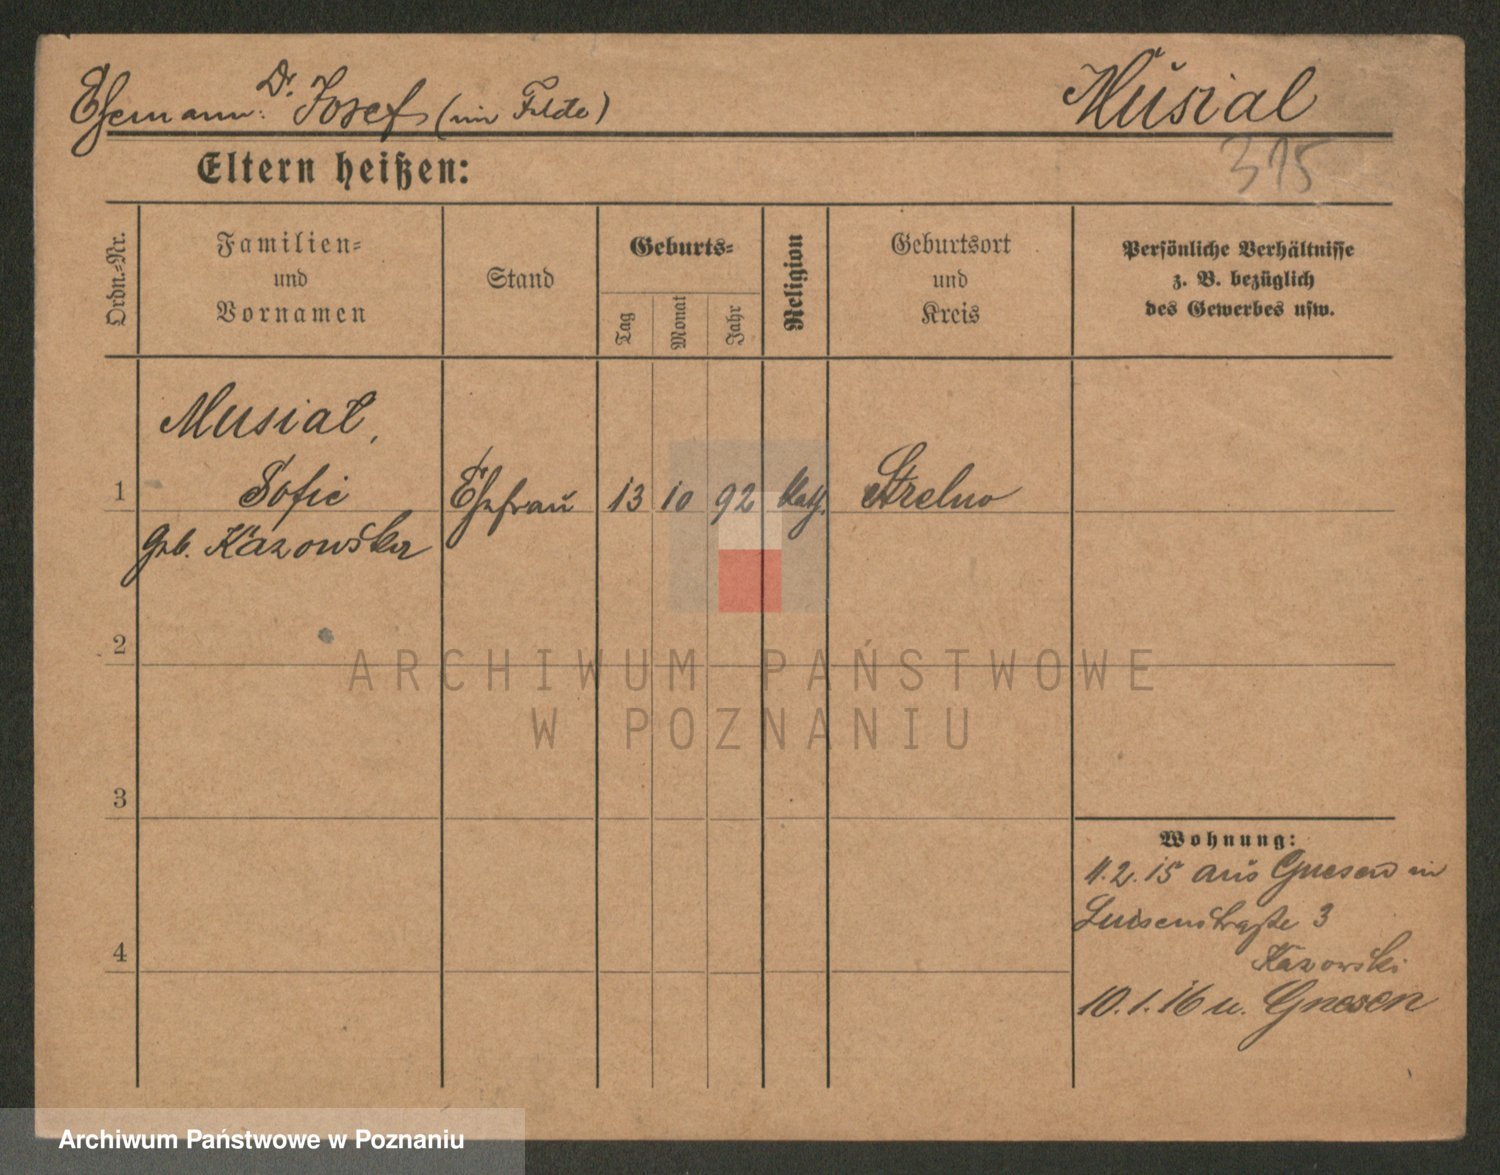 Ehemann: Dr. Josef (im Felde) Musial
315
Eltern heißen:
Ordn.-Nr.
Familien-
und
Vornamen
Stand
Geburts-
Tag
Monat
Jahr
Religion
Geburtsort
und
Kreis
Persönliche Verhältnisse
z. B. bezüglich
des Gewerbes usw.
Musiał,
1 Sofie Ehefrau 13 10 92 kath. Strelno
geb. Kazowska
2
3
4
Wohnung:
4.2.15 aus Gnesen in
Luisenstraße 3
Kazowski
10.1.16 n. Gnesen
ARCHIWUM PAŃSTWOWE
W POZNANIU
Archiwum Państwowe w Poznaniu